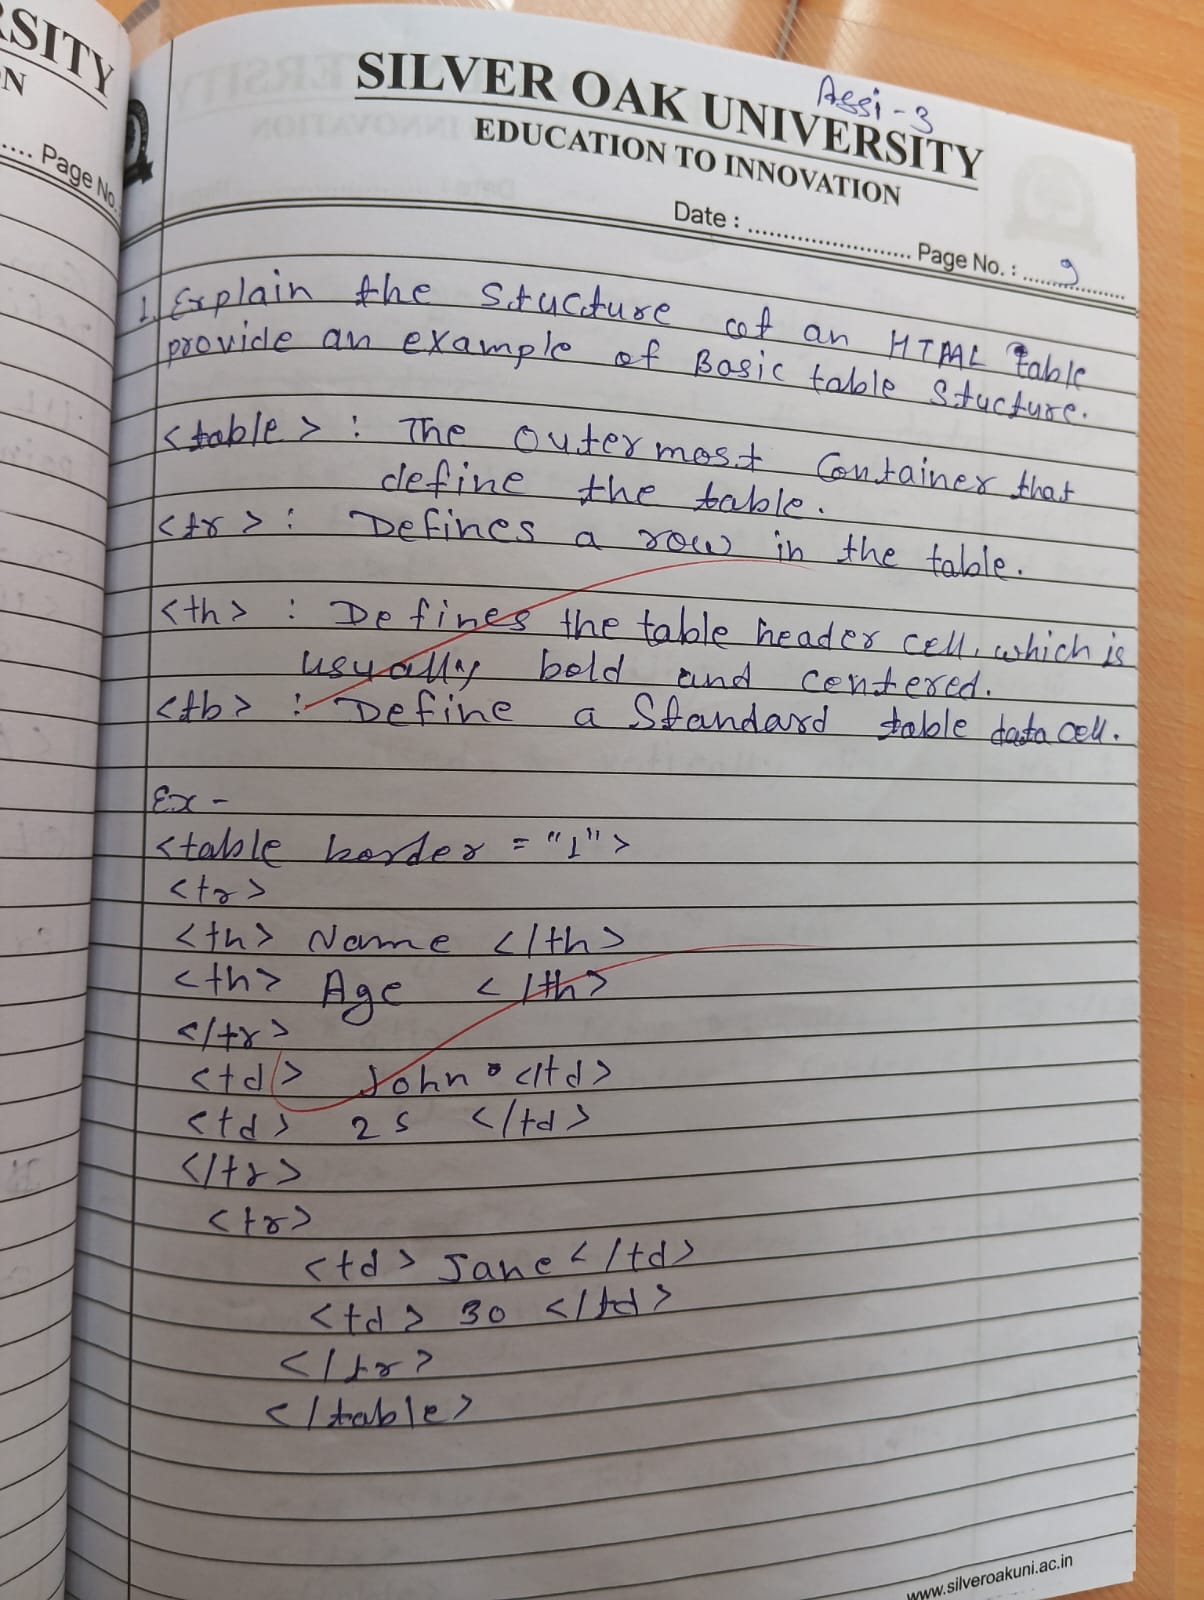 RSITY
ON
.... Page No.
Assi - 3
SILVER OAK UNIVERSITY
EDUCATION TO INNOVATION
Date : ........................ Page No. : ..... 9
1. Explain the Stucture of an HTML table
provide an example of Basic table Stucture.
<table> : The outermost Container that
define the table.
<tr> : Defines a row in the table.
<th> : Defines the table header cell, which is
usually bold and centered.
<tb> : Define a Standard table data cell.
Ex -
<table border = "1">
<tr>
<th> Name </th>
<th> Age </th>
</tr>
<td> John </td>
<td> 25 </td>
</tr>
<tr>
<td> Jane </td>
<td> 30 </td>
</tr>
</table>
www.silveroakuni.ac.in